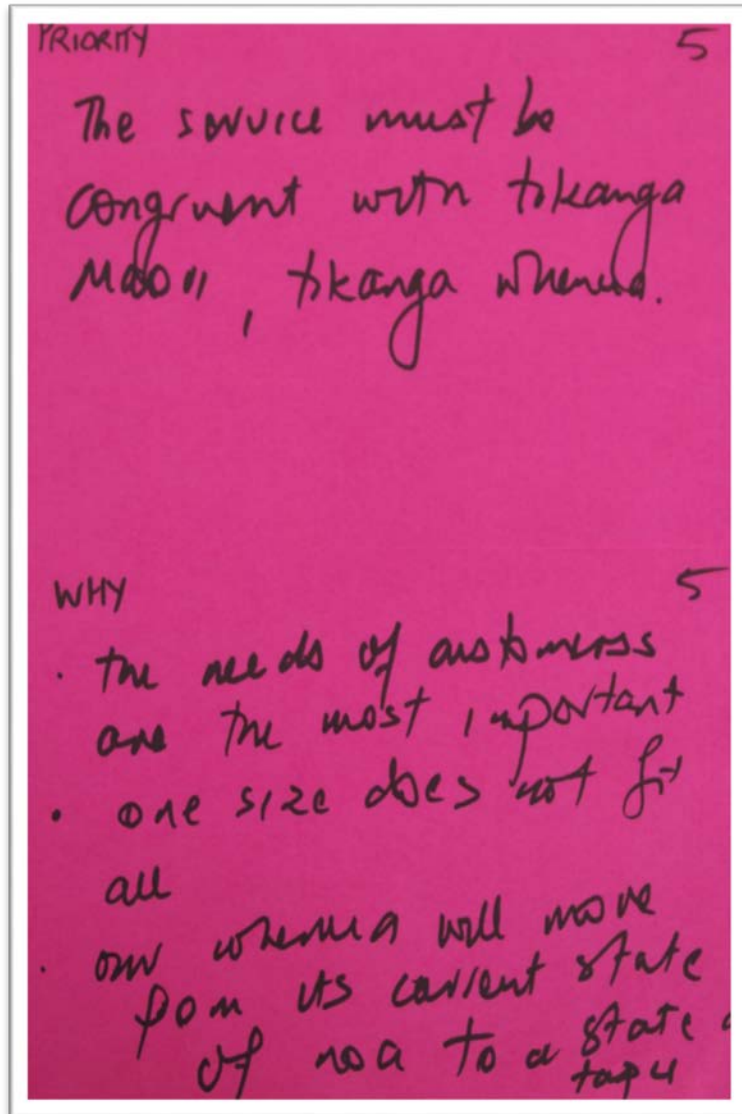 PRIORITY 5
The service must be
congruent with tikanga
Maori, tikanga whenua.
WHY 5
· the needs of customers
are the most important
· one size does not fit
all
· our whenua will move
from its current state
of noa to a state
tapu